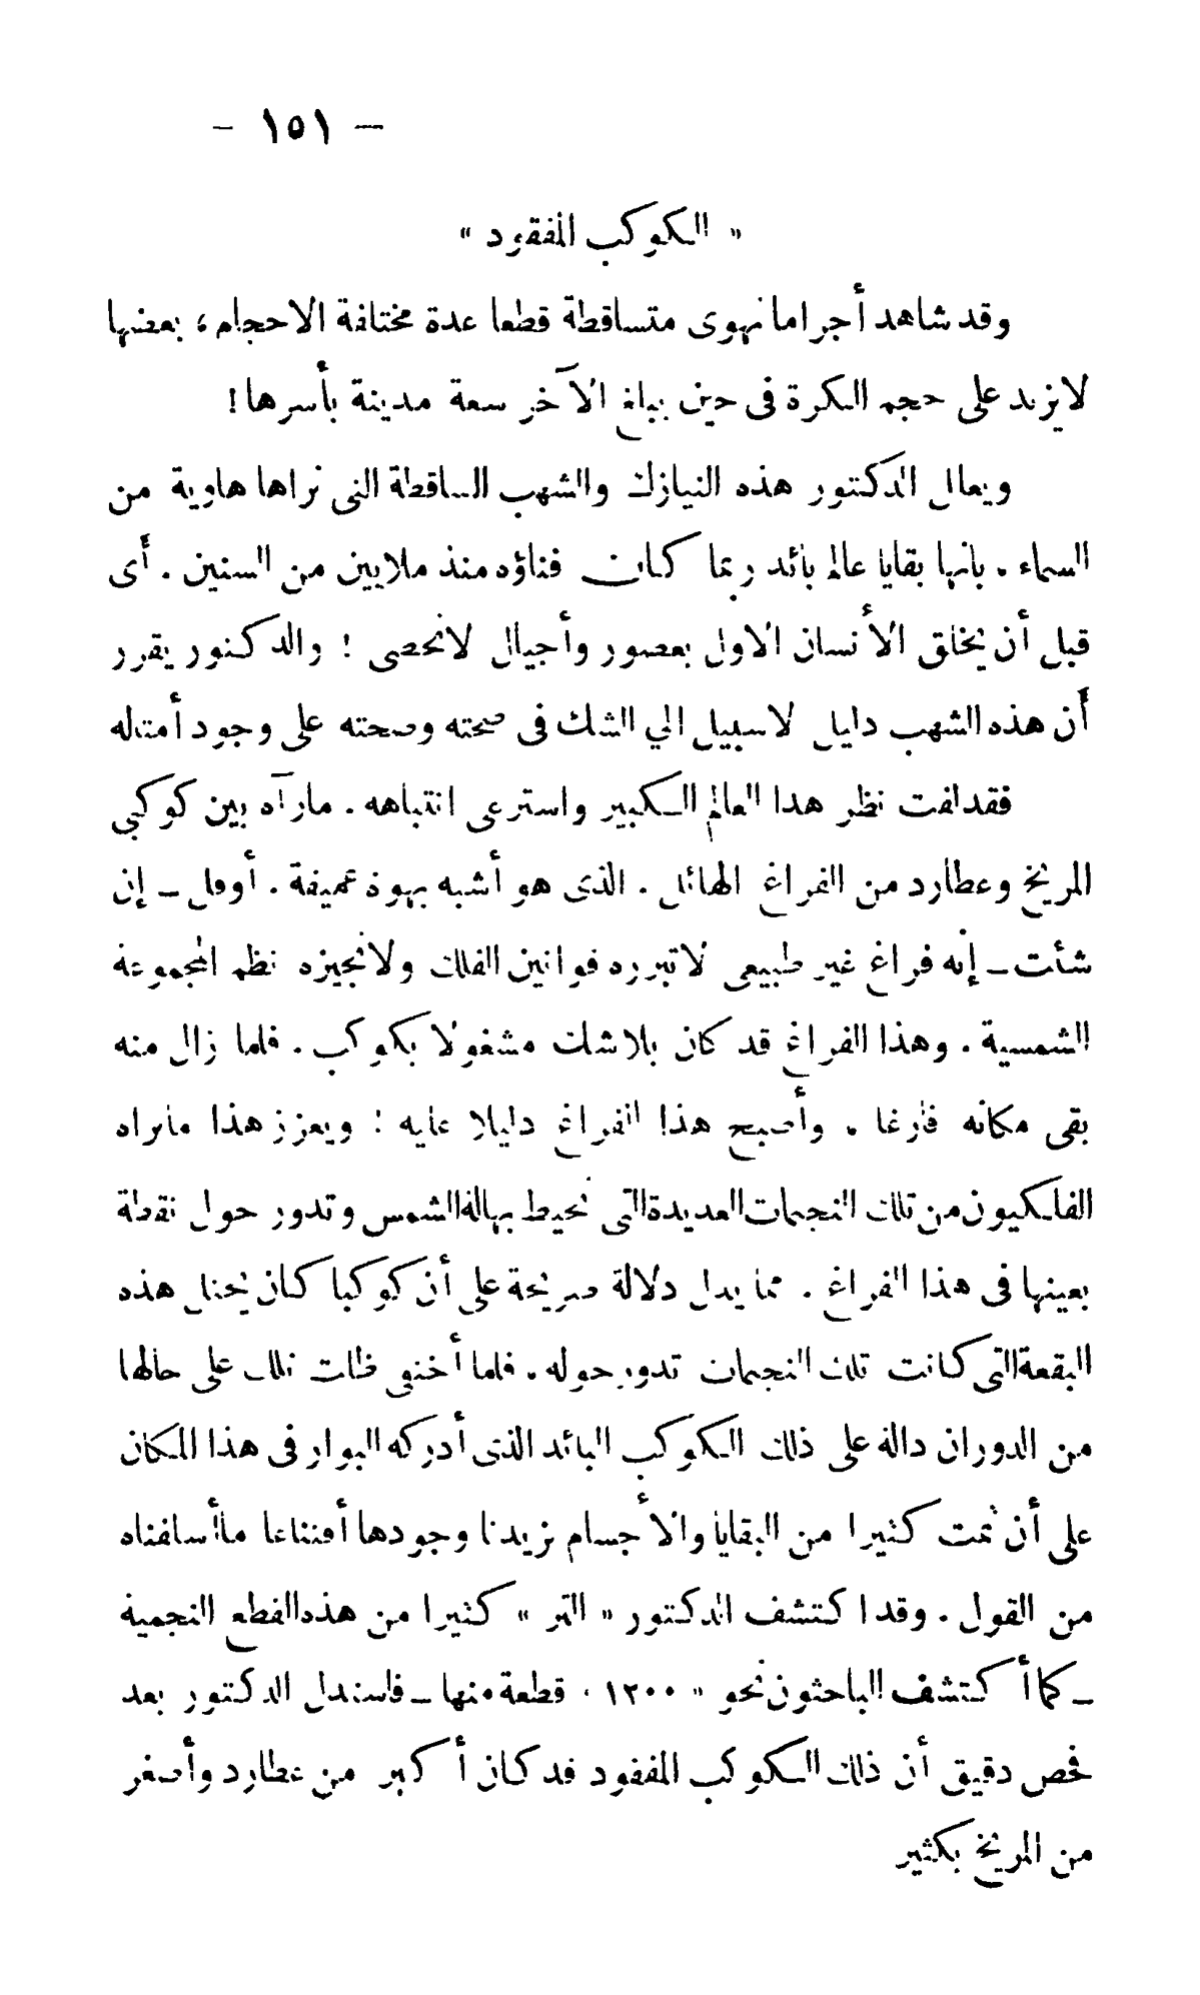 — ١٥١ —
« الكوكب المفقود »
وقد شاهد أجراما تهوى متساقطة قطعا عدة مختلفة الاحجام ، بعضها
لا يزيد على حجم الكرة فى حين يبلغ الآخر سعة مدينة بأسرها !
ويعلل الدكتور هذه النيازك والشهب الساقطة التى نراها هاوية من
السماء . بانها بقايا عالم بائد ربما كان فناؤه منذ ملايين من السنين . أى
قبل أن يخلق الأنسان الاول بعصور وأجيال لا تحصى ! والدكتور يقرر
أن هذه الشهب دليل لاسبيل الي الشك فى صحته وصحته على وجود أمثاله
فقد لفت نظر هذا العالم الكبير واسترعى انتباهه . مارآه بين كوكبى
المريخ وعطارد من الفراغ الهائل . الذى هو أشبه بهوة عميقة . أوقل ــ إن
شأت ــ إنه فراغ غير طبيعى لا تبرره قوانين الفلك ولا تجيزه نظم المجموعة
الشمسية . وهذا الفراغ قد كان بلا شك مشغولا بكوكب . فلما زال منه
بقى مكانه فارغا . وأصبح هذا الفراغ دليلا عليه : ويعزز هذا مايراه
الفلكيون من تلك النجيمات العديدة التى تحيط بهالة الشمس وتدور حول نقطة
بعينها فى هذا الفراغ . مما يدل دلالة صريحة على أن كوكبا كان يحتل هذه
البقعة التى كانت تلك النجيمات تدور حوله . فلما أختفى ظلت تلك على حالها
من الدوران دالة على ذلك الكوكب البائد الذى أدركه البوار فى هذا المكان
على أن ثمت كثيرا من البقايا والأجسام تزيدنا وجودها أقتناعا ماأسلفناه
من القول . وقد ا كتشف الدكتور « التمر » كثيرا من هذه القطع النجمية
ــ كما أكتشف الباحثون نحو « ١٢٠٠ » قطعة منها ــ فاستدل الدكتور بعد
فحص دقيق أن ذلك الكوكب المفقود قد كان أكبر من عطارد وأصغر
من المريخ بكثير